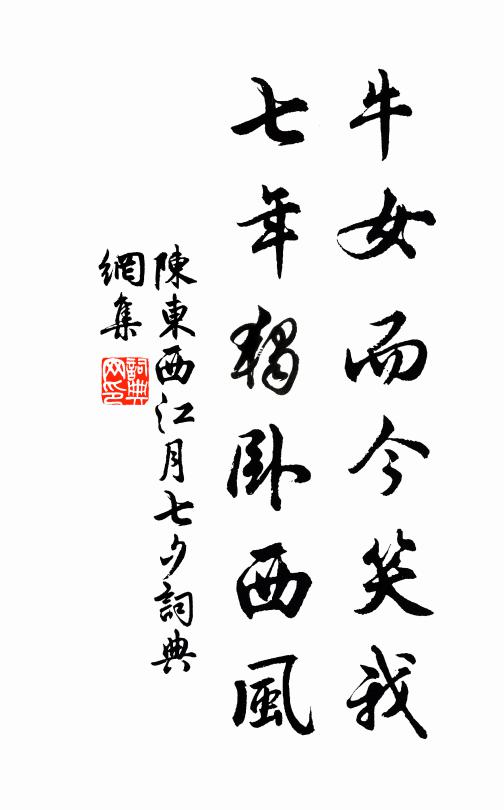 牛女而今笑我
七年獨臥西風
陳東西江月七夕詞典
網集
詞典
网印